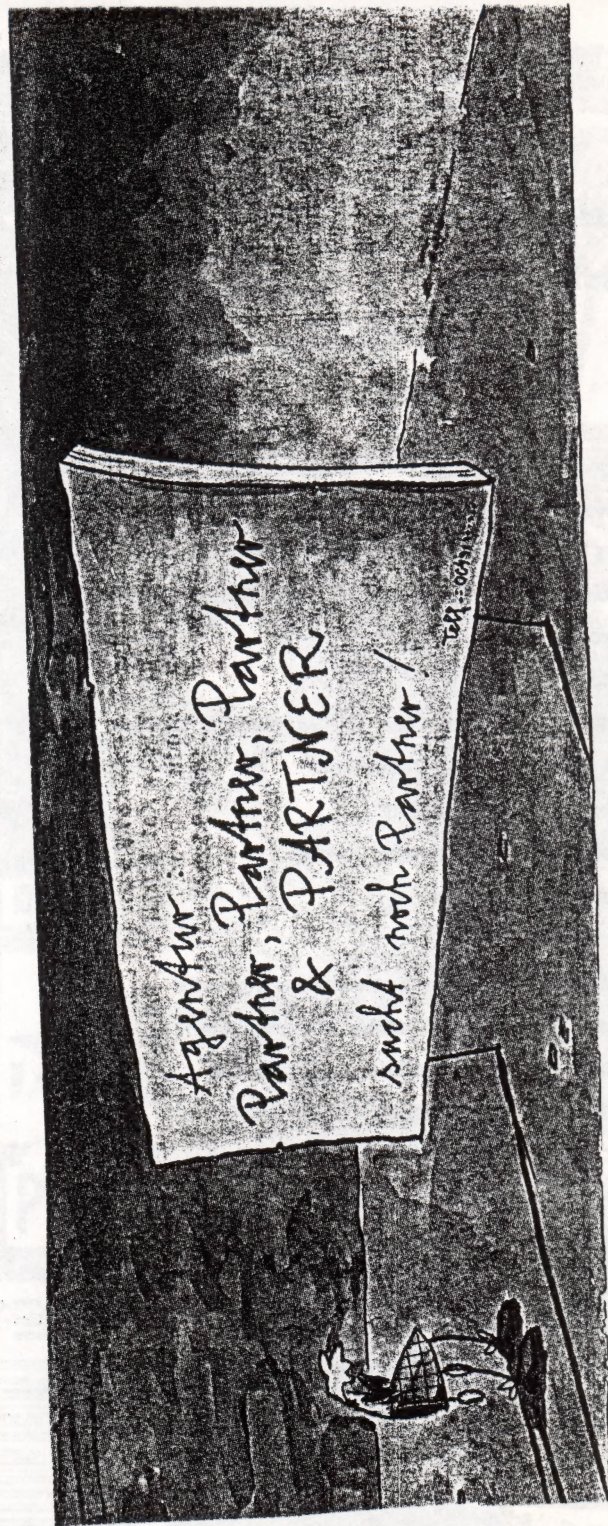 Agentur
Partner, Partner, Partner
& PARTNER
sucht noch Partner!